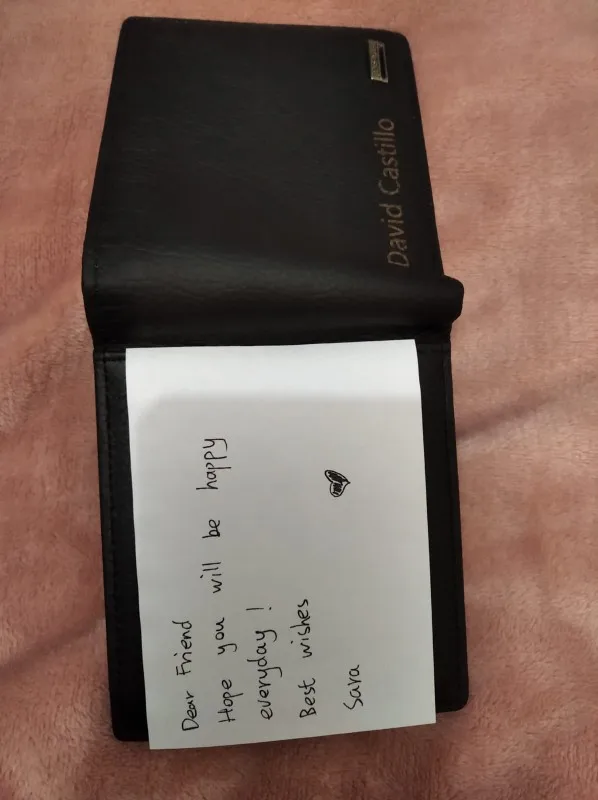 David Castillo
Dear Friend
Hope you will be happy
everyday!
Best wishes
Sara